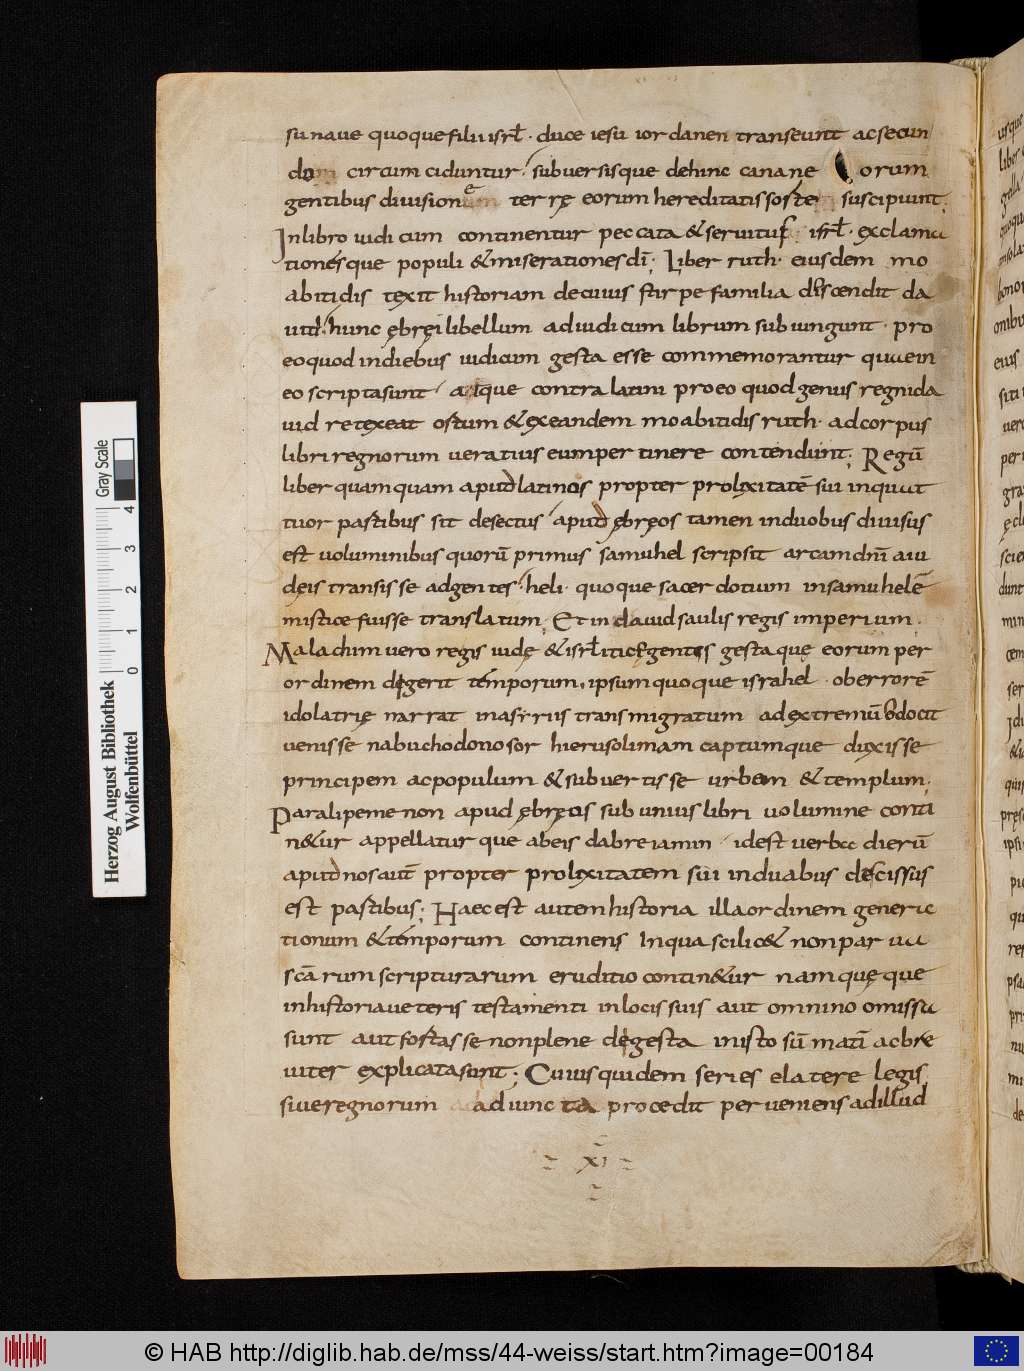 su naue quoque filii isrł · duce iesu iordanen transeunt ac secun
do circumciduntur · subuersisque dehinc cananeorum
gentibus diuisione terrę eorum hereditatis sortem suscipiunt ·
In libro iudicum continentur peccata & seruitus isrł · exclama
tionesque populi & miserationes dī ; Liber ruth · eiusdem mo
abitidis texit historiam de cuius stirpe familia discendit da
uid · hunc ębręi libellum ad iudicum librum subiungunt · pro
eo quod in diebus iudicum gesta esse commemorantur quae in
eo scripta sunt / atque contra latini pro eo quod genus regni da
uid retexeat ostum & ex eandem moabitidis ruth · ad corpus
libri regnorum veratius eum pertinere contendunt ; Regū
liber quamquam apud latinos propter prolixitatē sui in quat
tuor partibus sit desectus / apud ębręos tamen in duobus diuisus
est uoluminibus quorū primus samuhel scripsit arcam dnī a iu
dęis transisse ad gentes · heli · quoque sacerdotium in samuhelē
mistice fuisse translatum · Et in dauid saulis regis imperium ·
Malachim uero regis iudę & isrłiticę gentis gesta quę eorum per
ordinem degerit temporum · ipsum quoque israhel · ob errorē
idolatrię narrat in assirrius transmigratum ad extremū docit
uenisse nabuchodonosor hierusolimam captumque duxisse
principem ac populum & subuertisse urbem & templum ·
Paralipemenon apud ębręos sub unius libri uolumine conti
n&ur appellatur que ab eis dabreiamin / id est verba dierū
apud nos aut̄ propter prolixitatem sui in duabus descissus
est partibus ; Haec est autem historia illa ordinem generic
tionum & temporum continens In qua scilic& non parua
scā rum scripturarum eruditio contin&ur nam quę que
in historia ueteris testamenti in locis suis aut omnino omissa
sunt aut fortasse non plene degesta in isto sūmatī ac bre
uiter explicata sunt ; Cuius quidem series e latere legis
siue regnorum adiuncta procedit perueniens ad illud
XI
Herzog August Bibliothek
Wolfenbüttel
0 1 2 3 4
Gray Scale
© HAB http://diglib.hab.de/mss/44-weiss/start.htm?image=00184